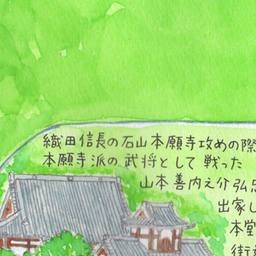 織田信長の石山本願寺攻めの際
本願寺派の武将として戦った
山本善内之介弘忠
出家し
本堂
街道